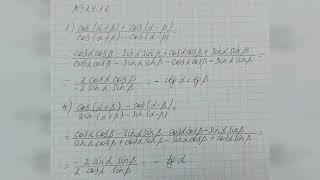 № 24.16
2) cos(α+β) + cos(α-β) / cos(α+β) - cos(α-β) =
= cosαcosβ - sinαsinβ + cosαcosβ + sinαsinβ / cosαcosβ - sinαsinβ - cosαcosβ - sinαsinβ =
- 2cosαcosβ / -2sinαsinβ = - ctgαctgβ
4) cos(α+β) - cos(α-β) / sin(α+β) - sin(α-β) =
= cosαcosβ - sinαsinβ - cosαcosβ - sinαsinβ / sinαcosβ + cosαsinβ - sinαcosβ + cosαsinβ =
= -2sinαsinβ / 2cosαsinβ = - tgα